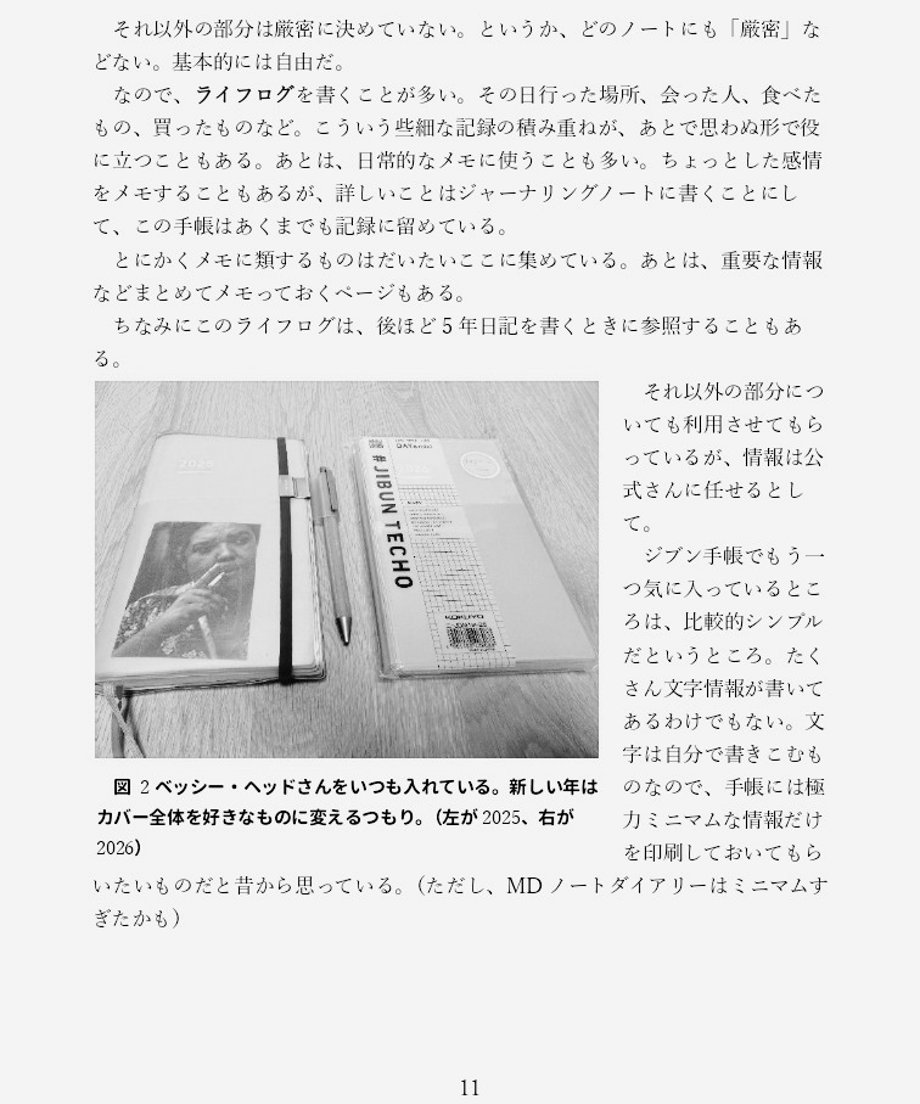 それ以外の部分は厳密に決めていない。というか、どのノートにも「厳密」な
どない。基本的には自由だ。
なので、ライフログを書くことが多い。その日行った場所、会った人、食べた
もの、買ったものなど。こういう些細な記録の積み重ねが、あとで思わぬ形で役
に立つこともある。あとは、日常的なメモに使うことも多い。ちょっとした感情
をメモすることもあるが、詳しいことはジャーナリングノートに書くことにし
て、この手帳はあくまでも記録に留めている。
とにかくメモに類するものはだいたいここに集めている。あとは、重要な情報
などまとめてメモっておくページもある。
ちなみにこのライフログは、後ほど5年日記を書くときに参照することもあ
る。
2025
#JIBUN TECHO
それ以外の部分につ
いても利用させてもら
っているが、情報は公
式さんに任せるとし
て。
ジブン手帳でもう一
つ気に入っているとこ
ろは、比較的シンプル
だというところ。たく
さん文字情報が書いて
あるわけでもない。文
字は自分で書きこむも
のなので、手帳には極
力ミニマムな情報だけ
を印刷しておいてもら
いたいものだと昔から思っている。（ただし、MDノートダイアリーはミニマムす
ぎたかも）
図 2 ベッシー・ヘッドさんをいつも入れている。新しい年は
カバー全体を好きなものに変えるつもり。（左が 2025、右が
2026）
11